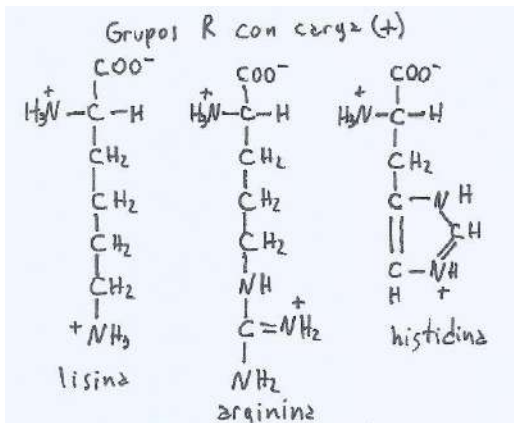 Grupos R con carga (+)
COO⁻
H₃N⁺–C–H
CH₂
CH₂
CH₂
CH₂
⁺NH₃
lisina
COO⁻
H₃N⁺–C–H
CH₂
CH₂
CH₂
NH
C=NH₂⁺
NH₂
arginina
COO⁻
H₃N⁺–C–H
CH₂
C–N H
CH
C–NH⁺
H
histidina